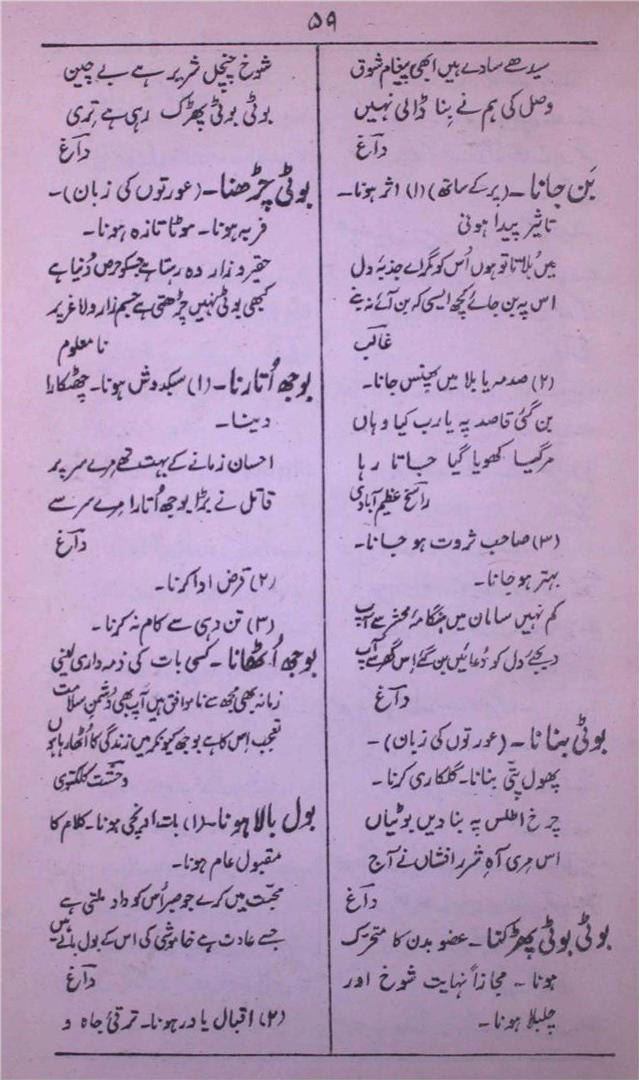 ۵۹
سیدھے سادے ہیں ابھی پیغام شوق
وصل کی ہم نے بنا ڈالی نہیں
داغ
بَن جانا۔ (پر کے ساتھ) (۱) اثر ہونا۔
تاثیر پیدا ہونی
میں بُلاتا تو ہوں اُس کو مگر اے جذبۂ دل
اس پہ بن جائے کچھ ایسی کہ بن آئے نہ بنے
غالب
(۲) صدمہ یا بلا میں پھنس جانا۔
بن گئی قاصد پہ یارب کیا وہاں
مر گیا کھویا گیا جاتا رہا
راسخ عظیم آبادی
(۳) صاحب ثروت ہو جانا۔
بہتر ہو جانا۔
کم نہیں سامان میں ہنگامۂ محشر سے آپ
دیجے دل کو دُعائیں بن گئے اِس گھر سے آپ
داغ
بوٹی بنانا۔ (عورتوں کی زبان)۔
پھول پتّی بنانا۔ گلکاری کرنا۔
چرخ اطلس پہ بنا دیں بوٹیاں
اس مری آہِ شرر افشاں نے آج
داغ
بوٹی بوٹی پھڑکنا۔ عضو بدن کا متحرک
ہونا۔ مجازاً نہایت شوخ اور
چلبلا ہونا۔
شوخ چنچل شریر ہے بے چین
بوٹی بوٹی پھڑک رہی ہے تری
داغ
بوٹی چڑھنا۔ (عورتوں کی زبان)۔
فربہ ہونا۔ موٹا تازہ ہونا۔
حقیر و زار وہ رہتا ہے جسکو حرص دُنیا ہے
کبھی بوٹی نہیں چڑھتی ہے جسم زار و لاغر پر
نا معلوم
بوجھ اُتارنا۔ (۱) سبکدوش ہونا۔ چھٹکارا
دینا۔
احسان زمانے کے بہت تھے مرے سر پر
قاتل نے بڑا بوجھ اُتارا مرے سر سے
داغ
(۲) قرض ادا کرنا۔
(۳) تن دہی سے کام نہ کرنا۔
بوجھ اُٹھانا۔ کسی بات کی ذمہ داری لینی
زمانہ بھی مجھ سے ناموافق ہیں آپ بھی دُشمنِ سلامت
تعجب اِس کا ہے بوجھ کیونکر میں زندگی کا اُٹھا رہا ہوں
وحشت کلکتوی
بول بالا ہونا۔ (۱) بات اونچی ہونا۔ کلام کا
مقبول عام ہونا۔
محبّت میں کرے جو صبر اُس کو داد ملتی ہے
جسے عادت ہے خاموشی کی اس کے بول بالے ہیں
داغ
(۲) اقبال یاور ہونا۔ ترقیٔ جاہ و